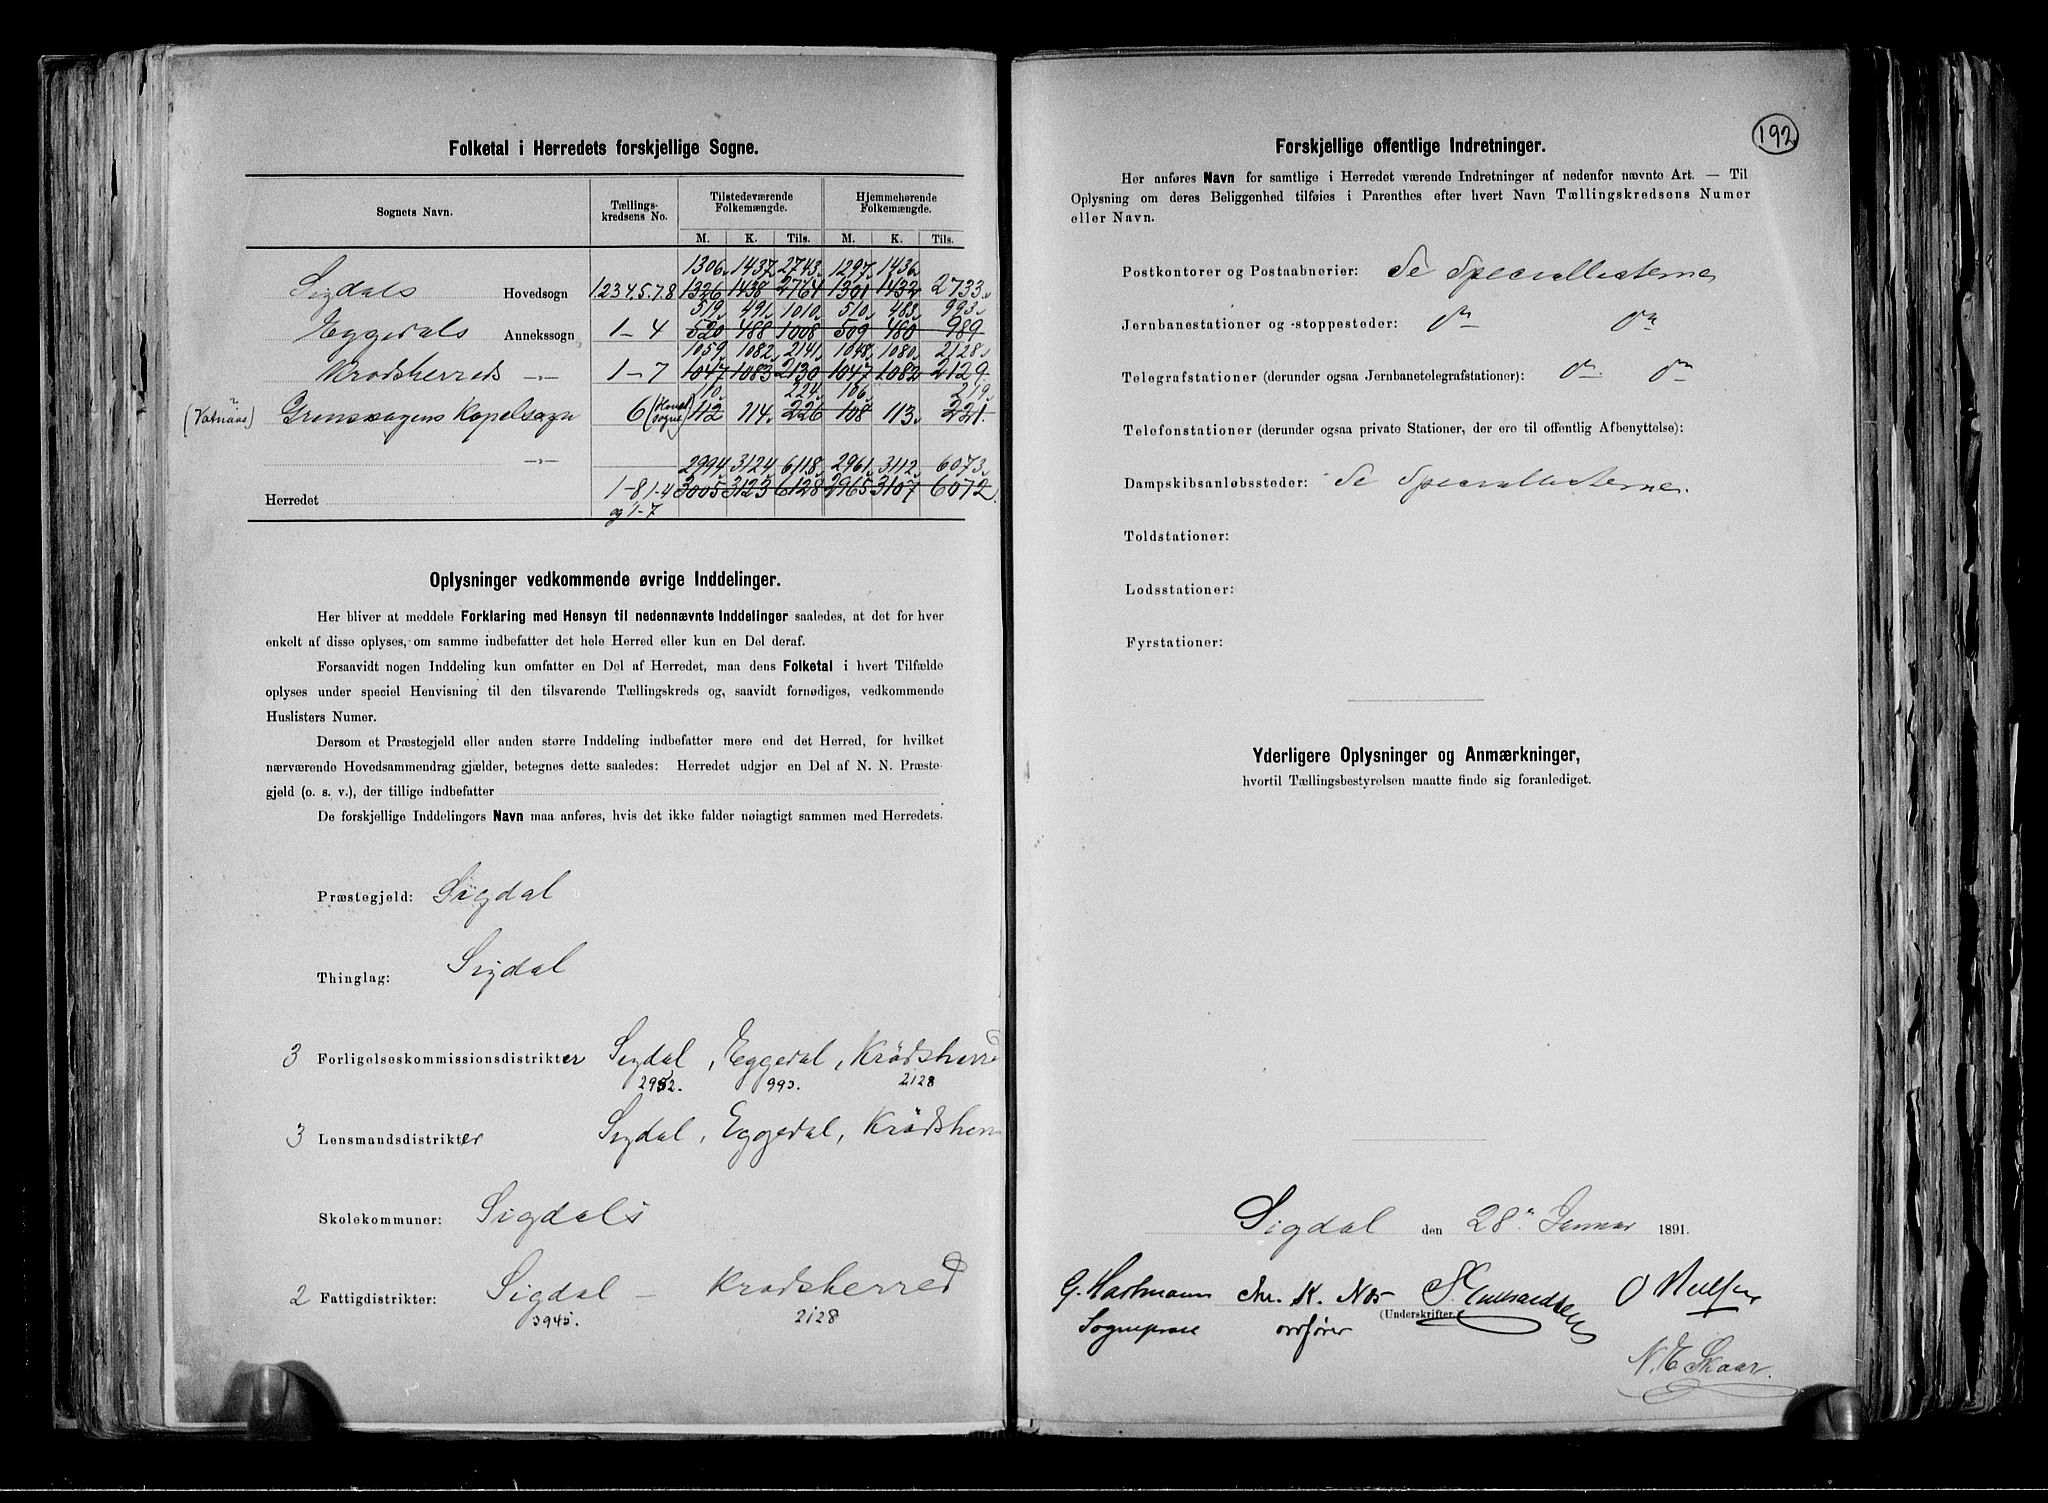 Folketal i Herredets forskjellige Sogne.
Sognets Navn. Tællings-kredsens No. Tilstedeværende Folkemængde. Hjemmehørende Folkemængde.
M. K. Tils. M. K. Tils.
1306 1437 2743 1297 1436
Sigdals Hovedsogn 1.2.3.4.5.7.8 1326 1438 2764 1301 1432 2733
519 491 1010 510 483 993
Eggedals Annekssogn 1-4 520 488 1008 509 480 989
1059 1082 2141 1048 1080 2128
Krødsherreds -"- 1-7 1047 1083 2130 1047 1082 2129
110 224 106 219
(Vatnaas) Grensaagens Kapelsogn 6 (Hoved sogne) 112 114 226 108 113 221
-"-
2994 3124 6118 2961 3112 6073
Herredet 1-8 1-4 og 1-7 3005 3123 6128 2965 3107 6072
Oplysninger vedkommende øvrige Inddelinger.
Her bliver at meddele Forklaring med Hensyn til nedennævnte Inddelinger saaledes, at det for hver
enkelt af disse oplyses, om samme indbefatter det hele Herred eller kun en Del deraf.
Forsaavidt nogen Inddeling kun omfatter en Del af Herredet, maa dens Folketal i hvert Tilfælde
oplyses under speciel Henvisning til den tilsvarende Tællingskreds og, saavidt fornødiges, vedkommende
Huslisters Numer.
Dersom et Præstegjeld eller anden større Inddeling indbefatter mere end det Herred, for hvilket
nærværende Hovedsammendrag gjælder, betegnes dette saaledes: Herredet udgjør en Del af N. N. Præste-
gjeld (o. s. v.), der tillige indbefatter
De forskjellige Inddelingers Navn maa anføres, hvis det ikke falder nøiagtigt sammen med Herredets.
Præstegjeld: Sigdal
Thinglag: Sigdal
3 Forligelseskommissionsdistrikter Sigdal, Eggedal, Krødsherred
2952. 993. 2128
3 Lensmandsdistrikter Sigdal, Eggedal, Krødsherr
Skolekommuner: Sigdals
2 Fattigdistrikter: Sigdal - Krødsherred
3945. 2128
192
Forskjellige offentlige Indretninger.
Her anføres Navn for samtlige i Herredet værende Indretninger af nedenfor nævnte Art. — Til
Oplysning om deres Beliggenhed tilføies i Parenthes efter hvert Navn Tællingskredsens Numer
eller Navn.
Postkontorer og Postaabnerier: Se Speciallisterne
Jernbanestationer og -stoppesteder: do do
Telegrafstationer (derunder ogsaa Jernbanetelegrafstationer): do do
Telefonstationer (derunder ogsaa private Stationer, der ere til offentlig Afbenyttelse):
Dampskibsanløbssteder: Se Speciallisterne.
Toldstationer:
Lodsstationer:
Fyrstationer:
Yderligere Oplysninger og Anmærkninger,
hvortil Tællingsbestyrelsen maatte finde sig foranlediget.
Sigdal den 28 Januar 1891.
G. Hartmann Chr. K. Næs
(Underskrifter.)
Sognepræst ordfører
N. E. Skaar.